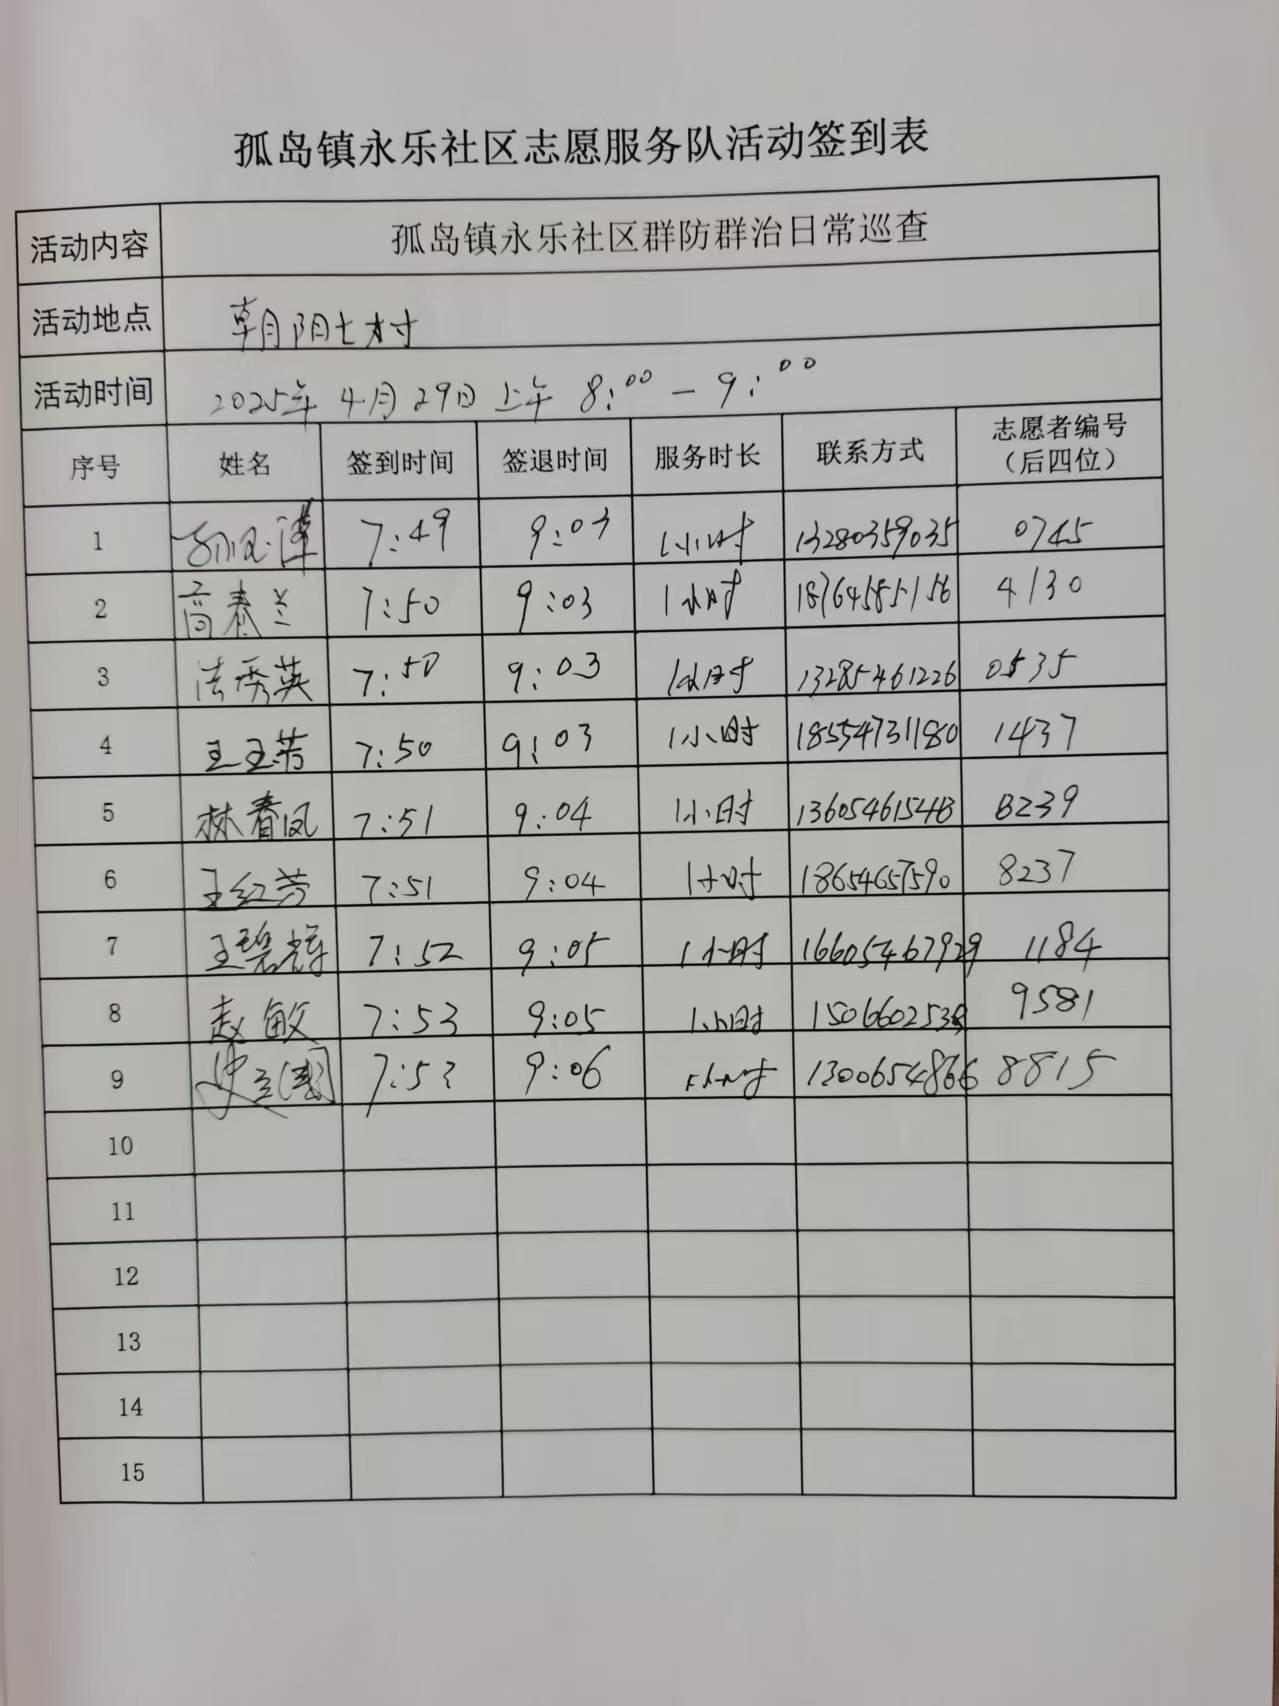 孤岛镇永乐社区志愿服务队活动签到表
活动内容 孤岛镇永乐社区群防群治日常巡查
活动地点 朝阳七村
活动时间 2025年4月29日上午 8:00-9:00
序号 姓名 签到时间 签退时间 服务时长 联系方式 志愿者编号(后四位)
1 7:49 9:03 1小时 13280359035 0745
2 高春兰 7:50 9:03 1小时 4130
3 秀英 7:50 9:03 1小时 13285461226 0535
4 王玉芳 7:50 9:03 1小时 18554731180 1437
5 林春凤 7:51 9:04 1小时 8239
6 王红芳 7:51 9:04 1小时 18654657590 8237
7 王碧辉 7:52 9:05 1小时 16605467929 1184
8 赵敏 7:53 9:05 1小时 9581
9 7:53 9:06 1小时 13006548666 8815
10
11
12
13
14
15